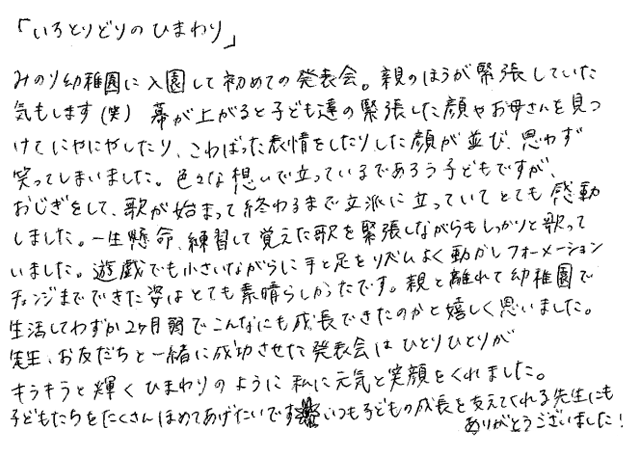 「いろとりどりのひまわり」
みのり幼稚園に入園して初めての発表会。親のほうが緊張していた
気もします(笑) 幕が上がると子ども達の緊張した顔やお母さんを見つ
けてにやにやしたり、こわばった表情をしたりした顔が並び、思わず
笑ってしまいました。色々な想いで立っているであろう子どもですが、
おじぎをして、歌が始まって終わるまで立派に立っていてとても感動
しました。一生懸命、練習して覚えた歌を緊張しながらもしっかりと歌って
いました。遊戯でも小さいながらに手と足をリズムよく動かしフォーメーション
チェンジまでできた姿はとても素晴らしかったです。親と離れて幼稚園で
生活してわずか2ヶ月弱でこんなにも成長できたのかと嬉しく思いました。
先生、お友だちと一緒に成功させた発表会はひとりひとりが
キラキラと輝くひまわりのように私に元気と笑顔をくれました。
子どもたちをたくさんほめてあげたいです いつも子どもの成長を支えてくれる先生にも
ありがとうございました!